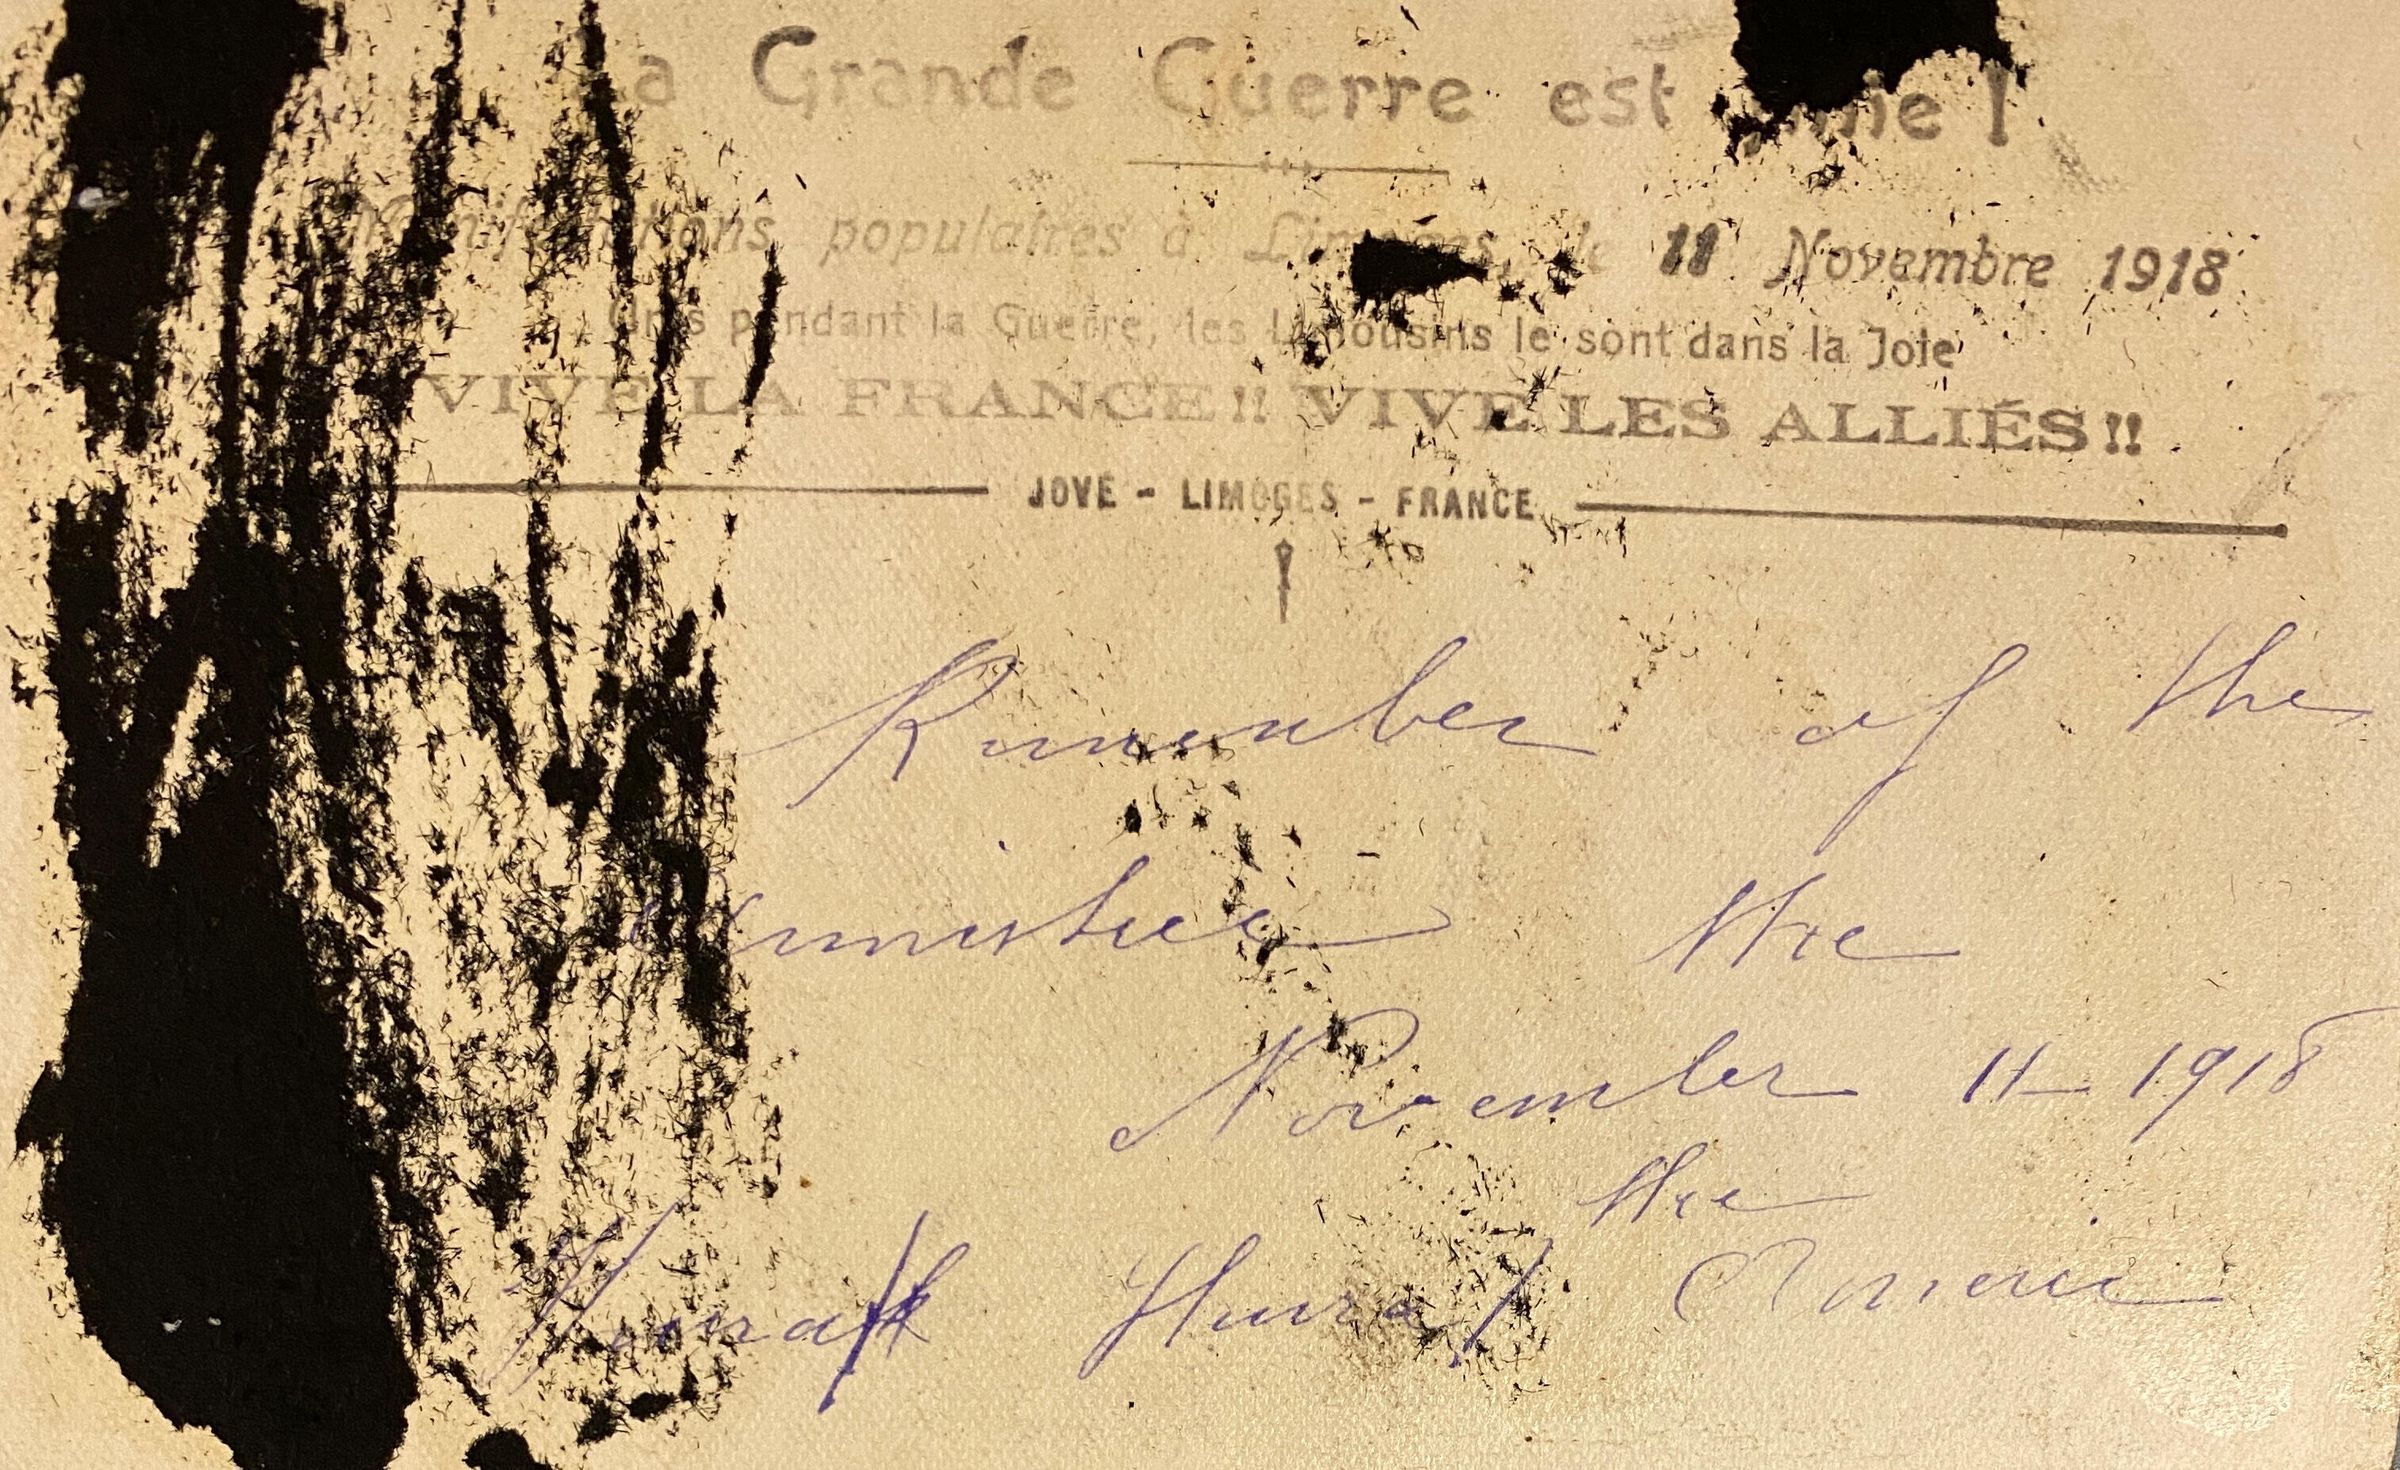 La Grande Guerre est finie !
Manifestations populaires à Limoges, le 11 Novembre 1918
Unis pendant la Guerre, les Limousins le sont dans la Joie
VIVE LA FRANCE !! VIVE LES ALLIÉS !!
JOVÉ - LIMOGES - FRANCE
Rumember of the
armistice the
November 11 - 1918
the
Hurah Hurah Americ